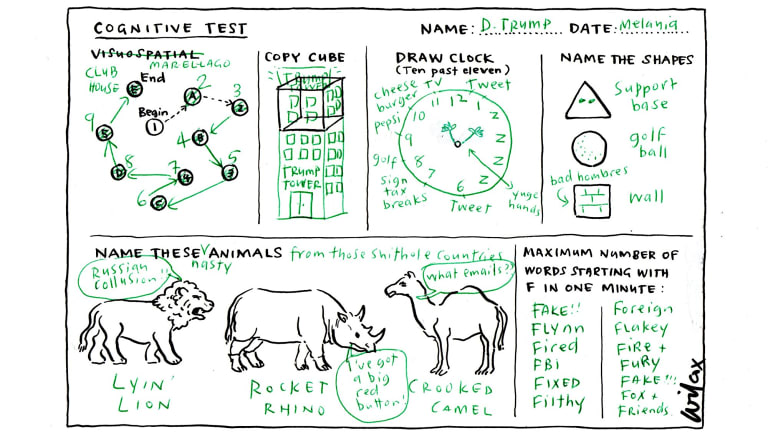 COGNITIVE TEST
NAME: D. TRUMP DATE: Melania
VISUOSPATIAL
MARELLAGO
CLUB
HOUSE
End
E
2
A
3
2
Begin
1
9
5
4
B
8
D
7
4
5
3
6
C
COPY CUBE
TRUMP
TOWER
TRUMP
TOWER
DRAW CLOCK
(Ten past eleven)
cheese
burger
TV
Tweet
pepsi
golf
sign
tax
breaks
Tweet
yuge
hands
11 12 1
10
9
8
7
6
Z
Z
Z
Z
NAME THE SHAPES
Support
base
golf
ball
bad hombres
wall
NAME THESE NASTY ANIMALS from those shithole countries
Russian
collusion!!
LYIN'
LION
I've got
a big
red
button!
ROCKET
RHINO
what emails??
CROOKED
CAMEL
MAXIMUM NUMBER OF
WORDS STARTING WITH
F IN ONE MINUTE:
FAKE!!
FLYNN
Fired
FBI
FIXED
Filthy
Foreign
Flakey
FiRe +
FuRy
FAKE!!!
Fox +
FRiends
wilcox